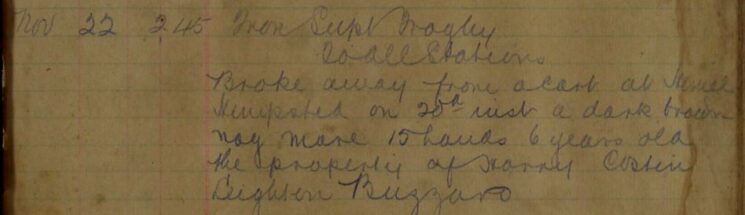 Nov 22 2.45 From Supt Wragby
To all Stations
Broke away from a cart at Hemel
Hempsted on 20th inst a dark brown
nag mare 15 hands 6 years old
the property of Harry Costin
Leighton Buzzard